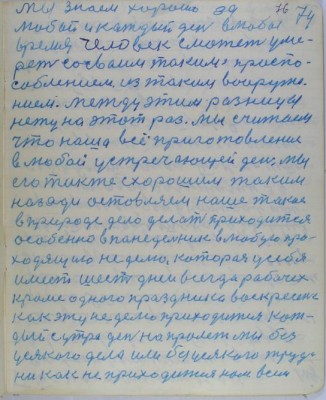 мы знаем хорошо 99 76 74
любой и каждый ден в любое
время, человек сможет уме-
рет со сваим таким приспо-
соблением, из таким вооруже-
нием. между этим разницы
нету на этот раз. мы считаем
что наша всё приготовление
в любой устречающей ден, мы
его тикте с хорошим таким
назади оставляем наше такое
в природе дело делат приходится
особенно в панеделник в любую про-
ходящию неделю, которая у себя
имеет шест дней всегда рабочех
кроме одного праздника воскресение
как эту неделю приходится каж-
дый с утра ден на пролет мы без
усякого дела или без усякого труда
ни как не приходится нам всем